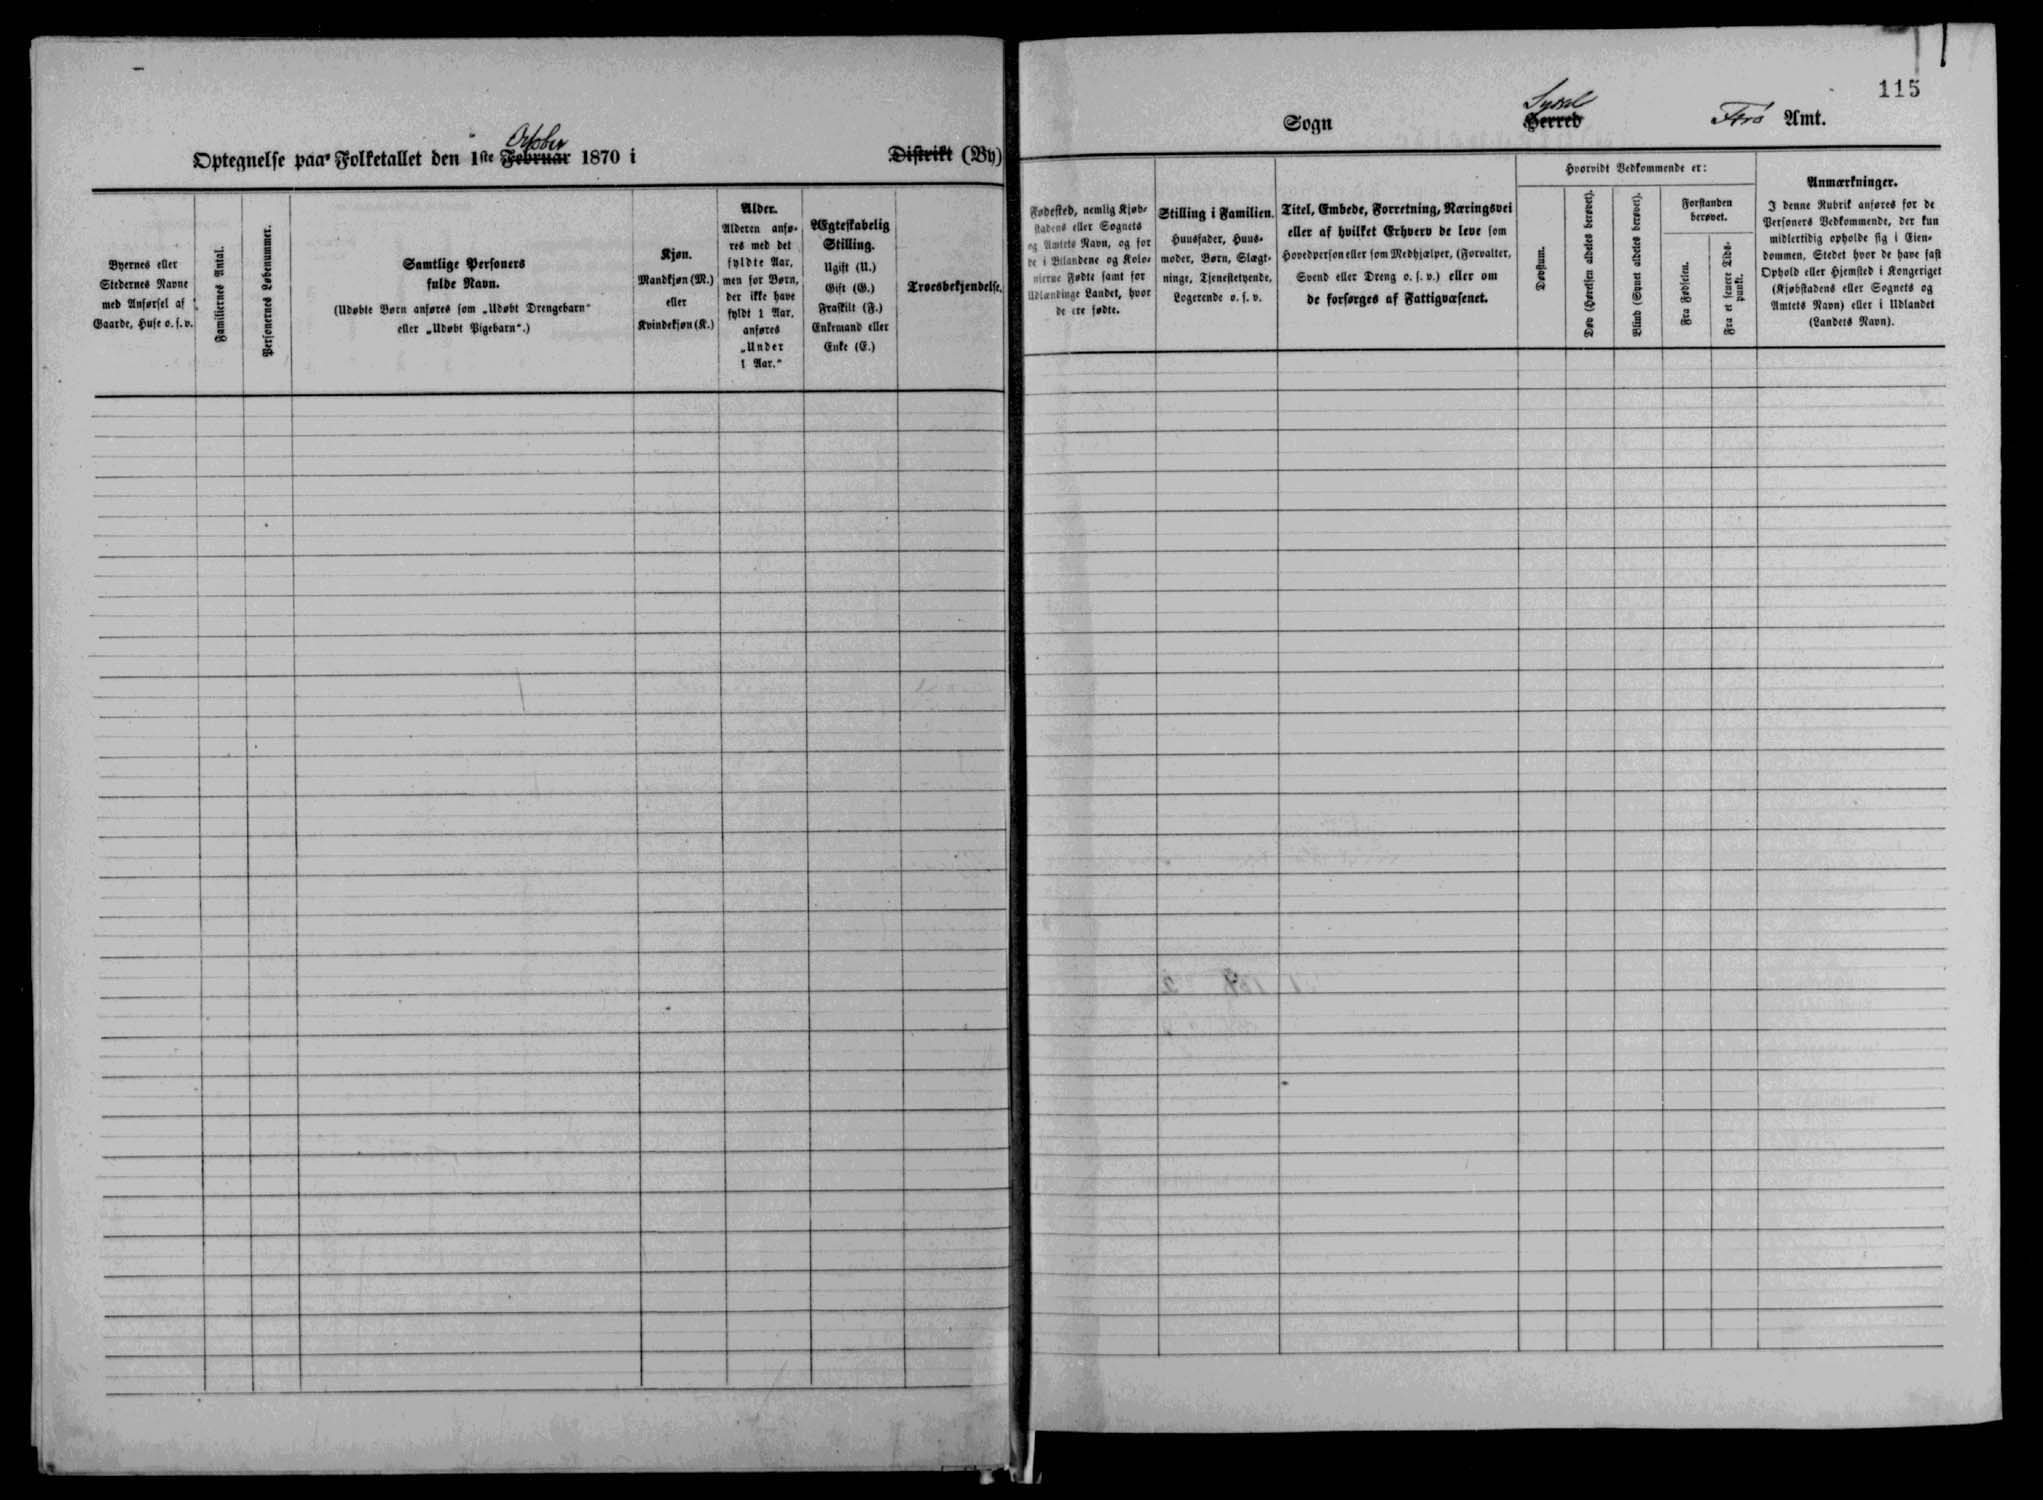 115
Optegnelse paa Folketallet den 1ste October Februar 1870 i Distrikt (By)
Sogn Syssel Herred Færø Amt.
Byernes eller
Stedernes Navne
med Anførsel af
Gaarde, Huse o. s. v.
Familiernes Antal.
Personernes Løbenummer.
Samtlige Personers
fulde Navn.
(Udøbte Børn anføres som „Udøbt Drengebarn“
eller „Udøbt Pigebarn“.)
Kjøn.
Mandkjøn (M.)
eller
Kvindekjøn (K.)
Alder.
Alderen anfø-
res med det
fyldte Aar,
men for Børn,
der ikke have
fyldt 1 Aar,
anføres
„Under
1 Aar.“
Ægteskabelig
Stilling.
Ugift (U.)
Gift (G.)
Fraskilt (F.)
Enkemand eller
Enke (E.)
Troesbekjendelse.
Fødested, nemlig Kjøb-
stadens eller Sognets
og Amtets Navn, og for
de i Bilandene og Kolo-
nierne Fødte samt for
Udlændinge Landet, hvor
de ere fødte.
Stilling i Familien.
Huusfader, Huus-
moder, Børn, Slægt-
ninge, Tjenestetyende,
Logerende o. s. v.
Titel, Embede, Forretning, Næringsvei
eller af hvilket Erhverv de leve som
Hovedperson eller som Medhjælper, (Forvalter,
Svend eller Dreng o. s. v.) eller om
de forsørges af Fattigvæsenet.
Hvorvidt Vedkommende er:
Døvstum.
Døv (Hørelsen aldeles berøvet).
Blind (Synet aldeles berøvet).
Forstanden
berøvet.
Fra Fødselen.
Fra et senere Tids-
punkt.
Anmærkninger.
I denne Rubrik anføres for de
Personers Vedkommende, der kun
midlertidig opholde sig i Eien-
dommen, Stedet hvor de have fast
Ophold eller Hjemsted i Kongeriget
(Kjøbstadens eller Sognets og
Amtets Navn) eller i Udlandet
(Landets Navn).